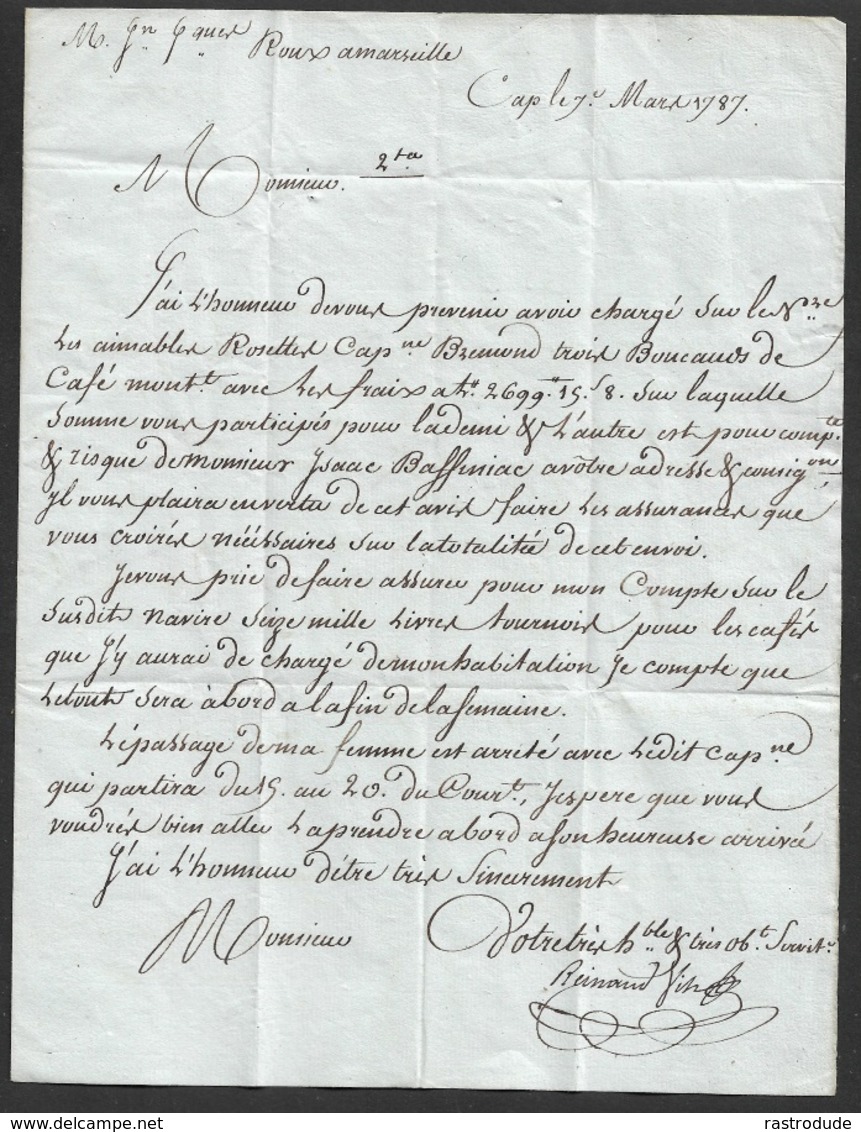 M. Jn Jques Roux a marseille
Cap le 7e. Mars 1787.
2ta
Monsieur.
J'ai L'honneur de vous prevenir avoir chargé sur le Nre
Les aimables Rosettes Capne Bremond trois Boucauds de
Café montt. avec Les fraix a Lt. 2699.." 15.s 8. sur laquelle
somme vous participés pour la demi & L'autre est pour compte.
& risque de monsieur Isaac Bassiniac a vôtre adresse & consigon
Il vous plaira en vertu de cet avis faire Les assurances que
vous croirés nécéssaires sur la totalitée de cet envoi.
Je vous prie de faire assurer pour mon Compte sur le
susdit navire seize mille Livres tournois pour les cafés
que J'y aurai de chargé de mon habitation Je compte que
Le tout sera à bord a la fin de la semaine.
Le passage de ma femme est arrêté avec Ledit capne
qui partira du 15. au 20. du Court., J'espere que vous
voudrés bien aller La prendre a bord a son heureuse arrivée
J'ai L'honneur d'être très Sincerement
Monsieur
Votre très hble & très obt. Servitr.
Reinaud fils
rastrodude